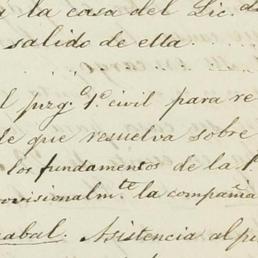 a la casa del Lic. d
salido de ella.
l juzg.º 1.º civil para re
de que resuelva sobre
los fundamentos de la 1.
rovisionalm.te la compañia
rabal. Asistencia al pe